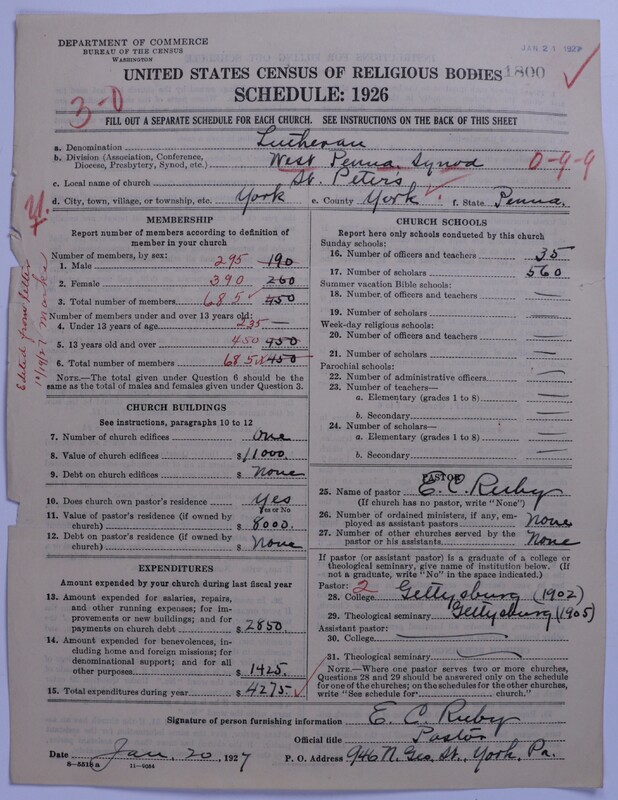 DEPARTMENT OF COMMERCE
BUREAU OF THE CENSUS
WASHINGTON
JAN 21 1927
UNITED STATES CENSUS OF RELIGIOUS BODIES 1800
SCHEDULE: 1926
3-0
FILL OUT A SEPARATE SCHEDULE FOR EACH CHURCH. SEE INSTRUCTIONS ON THE BACK OF THIS SHEET
a. Denomination Lutheran
b. Division (Association, Conference, Diocese, Presbytery, Synod, etc.) West Penna. Synod 0-9-9
c. Local name of church St. Peter's
d. City, town, village, or township, etc. York e. County York f. State Penna.
Edited from letter
MEMBERSHIP
Report number of members according to definition of
member in your church
Number of members, by sex:
1. Male 295 190
2. Female 390 260
3. Total number of members 685 450
Number of members under and over 13 years old:
4. Under 13 years of age 235 —
5. 13 years old and over 450 450
6. Total number of members 685 450
NOTE.—The total given under Question 6 should be the
same as the total of males and females given under Question 3.
CHURCH BUILDINGS
See instructions, paragraphs 10 to 12
7. Number of church edifices One
8. Value of church edifices $11000.
9. Debt on church edifices $ None
10. Does church own pastor's residence Yes
Yes or No
11. Value of pastor's residence (if owned by
church) $ 8000.
12. Debt on pastor's residence (if owned by
church) $ None
EXPENDITURES
Amount expended by your church during last fiscal year
13. Amount expended for salaries, repairs,
and other running expenses; for im-
provements or new buildings; and for
payments on church debt $ 2850.
14. Amount expended for benevolences, in-
cluding home and foreign missions; for
denominational support; and for all
other purposes $ 1425.
15. Total expenditures during year $ 4275.
CHURCH SCHOOLS
Report here only schools conducted by this church
Sunday schools:
16. Number of officers and teachers 35
17. Number of scholars 560
Summer vacation Bible schools:
18. Number of officers and teachers —
19. Number of scholars —
Week-day religious schools:
20. Number of officers and teachers —
21. Number of scholars —
Parochial schools:
22. Number of administrative officers —
23. Number of teachers—
a. Elementary (grades 1 to 8) —
b. Secondary —
24. Number of scholars—
a. Elementary (grades 1 to 8) —
b. Secondary —
PASTOR
25. Name of pastor E. C. Ruby
(If church has no pastor, write "None")
26. Number of ordained ministers, if any, em-
ployed as assistant pastors None
27. Number of other churches served by the
pastor or his assistants None
If pastor (or assistant pastor) is a graduate of a college or
theological seminary, give name of institution below. (If
not a graduate, write "No" in the space indicated.)
Pastor: 2
28. College Gettysburg (1902)
29. Theological seminary Gettysburg (1905)
Assistant pastor:
30. College —
31. Theological seminary —
NOTE.—Where one pastor serves two or more churches,
Questions 28 and 29 should be answered only on the schedule
for one of the churches; on the schedules for the other churches,
write "See schedule for church."
Signature of person furnishing information E. C. Ruby
Official title Pastor
Date Jan. 20, 1927 P. O. Address 946 N. Geo. St., York, Pa.
8-5518a 11-9034